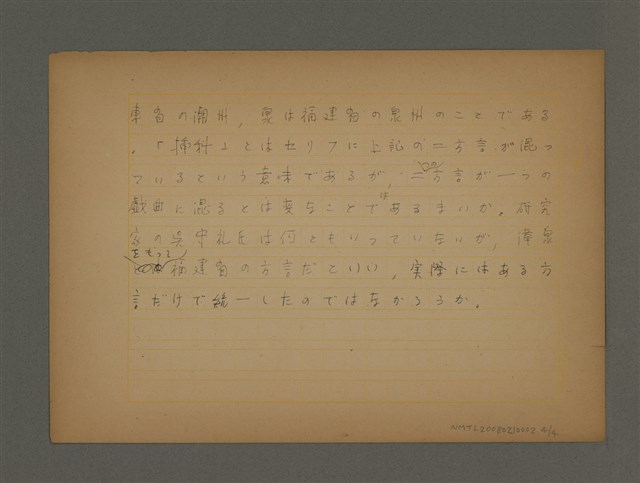 東省の潮州，泉は福建省の泉州のことである
．「挿科」とはセリフに上記の二方言が混っ
ているという意味であるが，二方言が一つの
戯曲に混るとは変なことではあるまいか。研究
家の呉守礼氏は何ともいっていないが，漳泉
をもって福建省の方言だといい，実際にはある方
言だけで統一したのではなかろうか。
NMTL20080210002 4/4